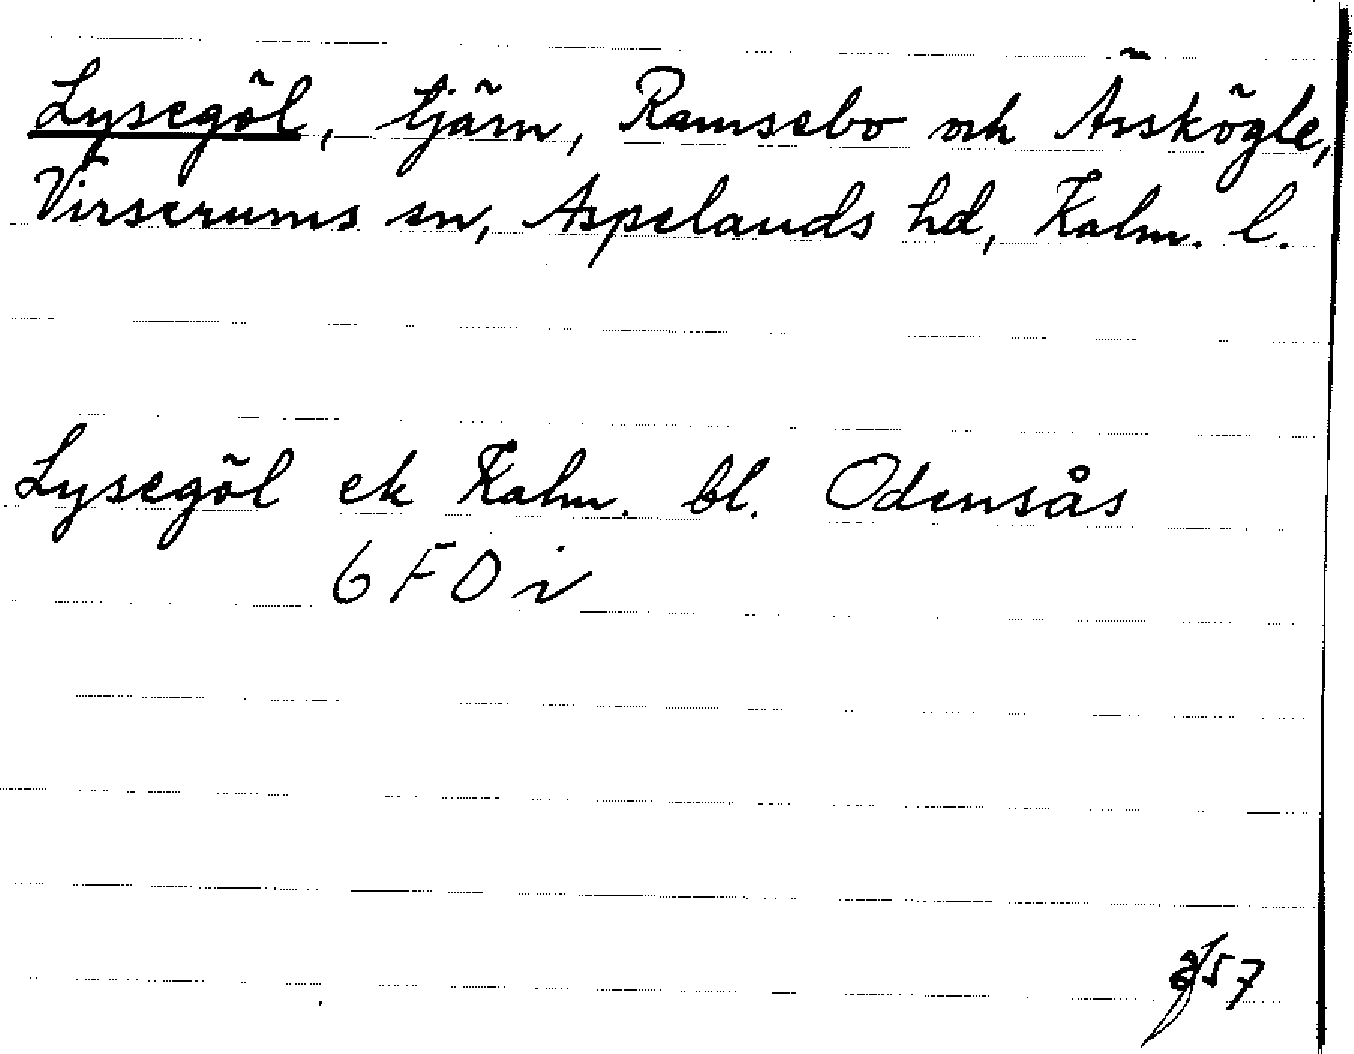 Lysegöl, tjärn, Ramsebo och Ärskögle,
Virserums sn, Aspelands hd, Kalm. l.
Lysegöl ek Kalm. bl. Odensås
6 F 0 i
57